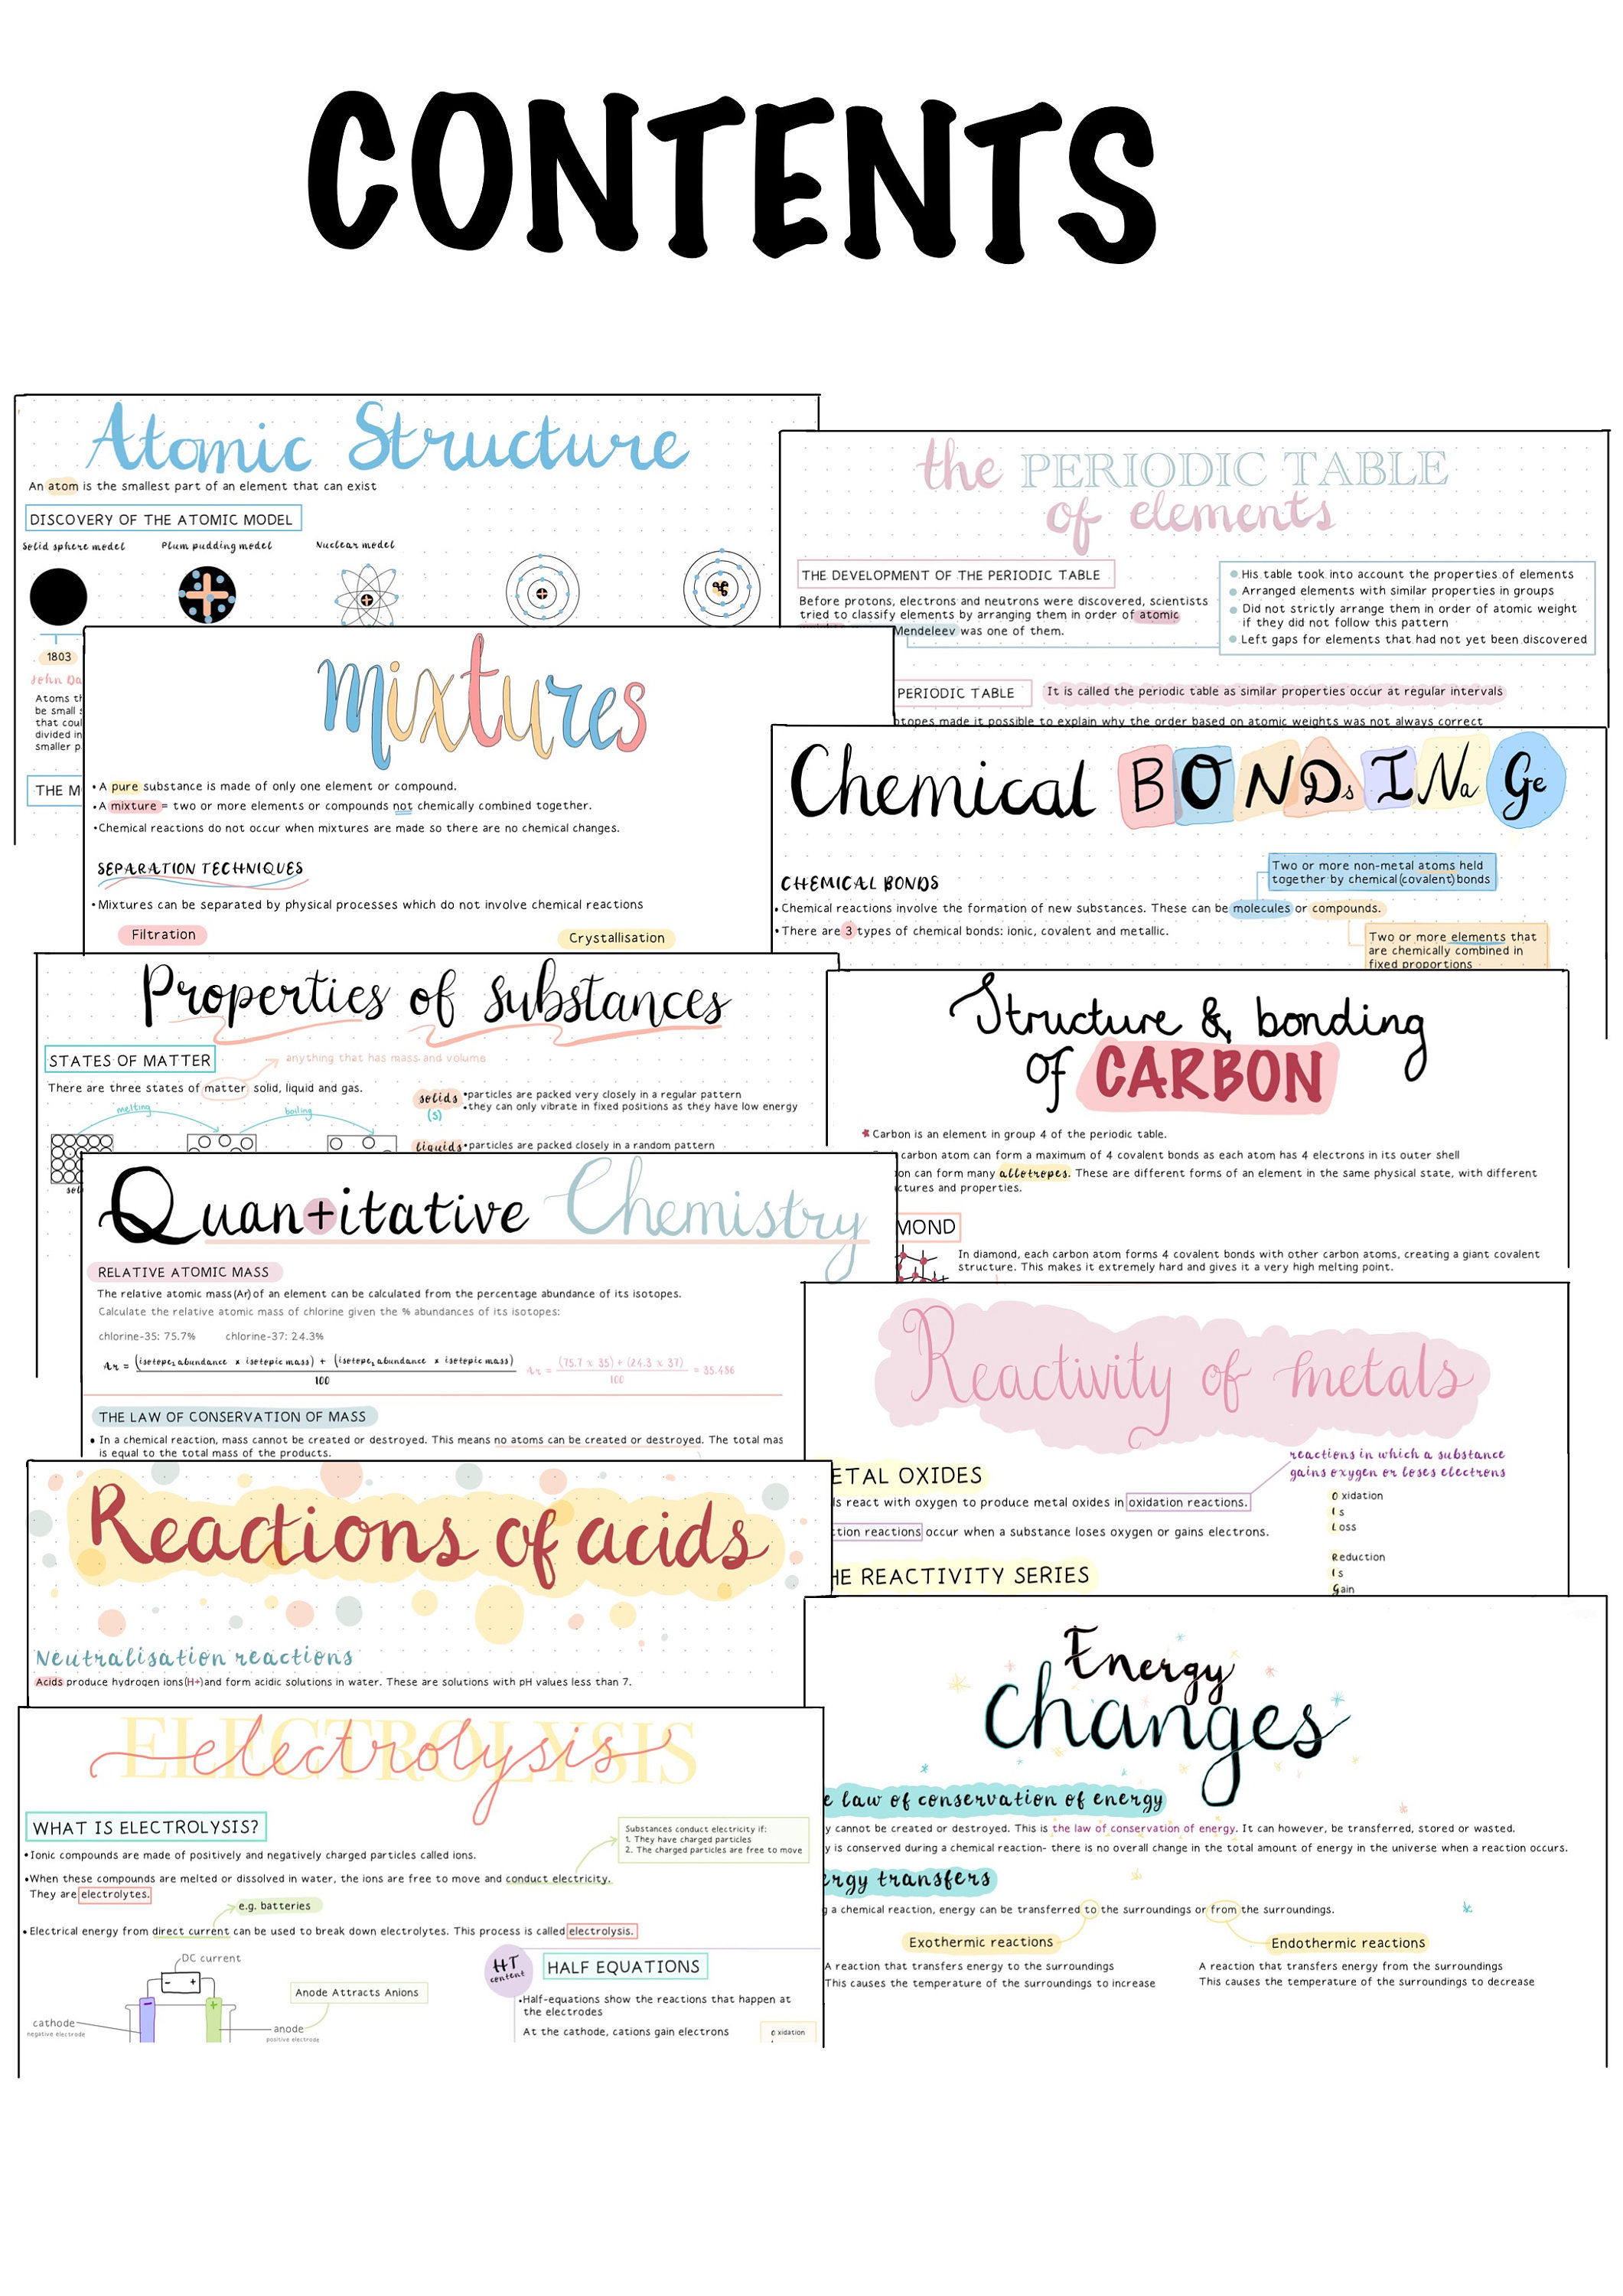 CONTENTS
Atomic Structure
An atom is the smallest part of an element that can exist
DISCOVERY OF THE ATOMIC MODEL
Solid sphere model
Plum pudding model
Nuclear model
1803
Atoms
be small
that
divided in
smaller
THE
the PERIODIC TABLE
of elements
THE DEVELOPMENT OF THE PERIODIC TABLE
Before protons, electrons and neutrons were discovered, scientists
tried to classify elements by arranging them in order of atomic
Mendeleev was one of them.
His table took into account the properties of elements
Arranged elements with similar properties in groups
Did not strictly arrange them in order of atomic weight
if they did not follow this pattern
Left gaps for elements that had not yet been discovered
PERIODIC TABLE
It is called the periodic table as similar properties occur at regular intervals
made it possible to explain why the order based on atomic weights was not always correct
mixtures
• A pure substance is made of only one element or compound.
• A mixture = two or more elements or compounds not chemically combined together.
• Chemical reactions do not occur when mixtures are made so there are no chemical changes.
SEPARATION TECHNIQUES
• Mixtures can be separated by physical processes which do not involve chemical reactions
Filtration
Crystallisation
Chemical BONDsINaGe
CHEMICAL BONDS
Two or more non-metal atoms held
together by chemical (covalent) bonds
• Chemical reactions involve the formation of new substances. These can be molecules or compounds.
• There are 3 types of chemical bonds: ionic, covalent and metallic.
Two or more elements that
are chemically combined in
fixed proportions
Properties of substances
STATES OF MATTER
anything that has mass and volume
There are three states of matter solid, liquid and gas.
melting
boiling
solids
(s)
• particles are packed very closely in a regular pattern
• they can only vibrate in fixed positions as they have low energy
liquids • particles are packed closely in a random pattern
Structure & bonding
of CARBON
* Carbon is an element in group 4 of the periodic table.
carbon atom can form a maximum of 4 covalent bonds as each atom has 4 electrons in its outer shell
can form many allotropes. These are different forms of an element in the same physical state, with different
and properties.
MOND
In diamond, each carbon atom forms 4 covalent bonds with other carbon atoms, creating a giant covalent
structure. This makes it extremely hard and gives it a very high melting point.
Quan+itative Chemistry
RELATIVE ATOMIC MASS
The relative atomic mass (Ar) of an element can be calculated from the percentage abundance of its isotopes.
Calculate the relative atomic mass of chlorine given the % abundances of its isotopes:
chlorine-35: 75.7%
chlorine-37: 24.3%
Ar = (isotope₁ abundance x isotopic mass) + (isotope₂ abundance x isotopic mass)
100
Ar = (75.7 x 35) + (24.3 x 37) = 35.486
100
THE LAW OF CONSERVATION OF MASS
• In a chemical reaction, mass cannot be created or destroyed. This means no atoms can be created or destroyed. The total mas
is equal to the total mass of the products.
Reactivity of metals
reactions in which a substance
gains oxygen or loses electrons
ETAL OXIDES
ls react with oxygen to produce metal oxides in oxidation reactions.
ction reactions occur when a substance loses oxygen or gains electrons.
HE REACTIVITY SERIES
Oxidation
Is
Loss
Reduction
Is
Gain
Reactions of acids
Neutralisation reactions
Acids produce hydrogen ions (H+) and form acidic solutions in water. These are solutions with pH values less than 7.
Energy
changes
e law of conservation of energy
y cannot be created or destroyed. This is the law of conservation of energy. It can however, be transferred, stored or wasted.
y is conserved during a chemical reaction- there is no overall change in the total amount of energy in the universe when a reaction occurs.
ergy transfers
g a chemical reaction, energy can be transferred to the surroundings or from the surroundings.
Exothermic reactions
Endothermic reactions
A reaction that transfers energy to the surroundings
This causes the temperature of the surroundings to increase
A reaction that transfers energy from the surroundings
This causes the temperature of the surroundings to decrease
ELECTROLYSIS
electrolysis
WHAT IS ELECTROLYSIS?
Substances conduct electricity if:
1. They have charged particles
2. The charged particles are free to move
• Ionic compounds are made of positively and negatively charged particles called ions.
• When these compounds are melted or dissolved in water, the ions are free to move and conduct electricity.
They are electrolytes.
e.g. batteries
• Electrical energy from direct current can be used to break down electrolytes. This process is called electrolysis.
DC current
- +
- +
cathode
negative electrode
anode
positive electrode
Anode Attracts Anions
HT
content
HALF EQUATIONS
• Half-equations show the reactions that happen at
the electrodes
At the cathode, cations gain electrons
Oxidation